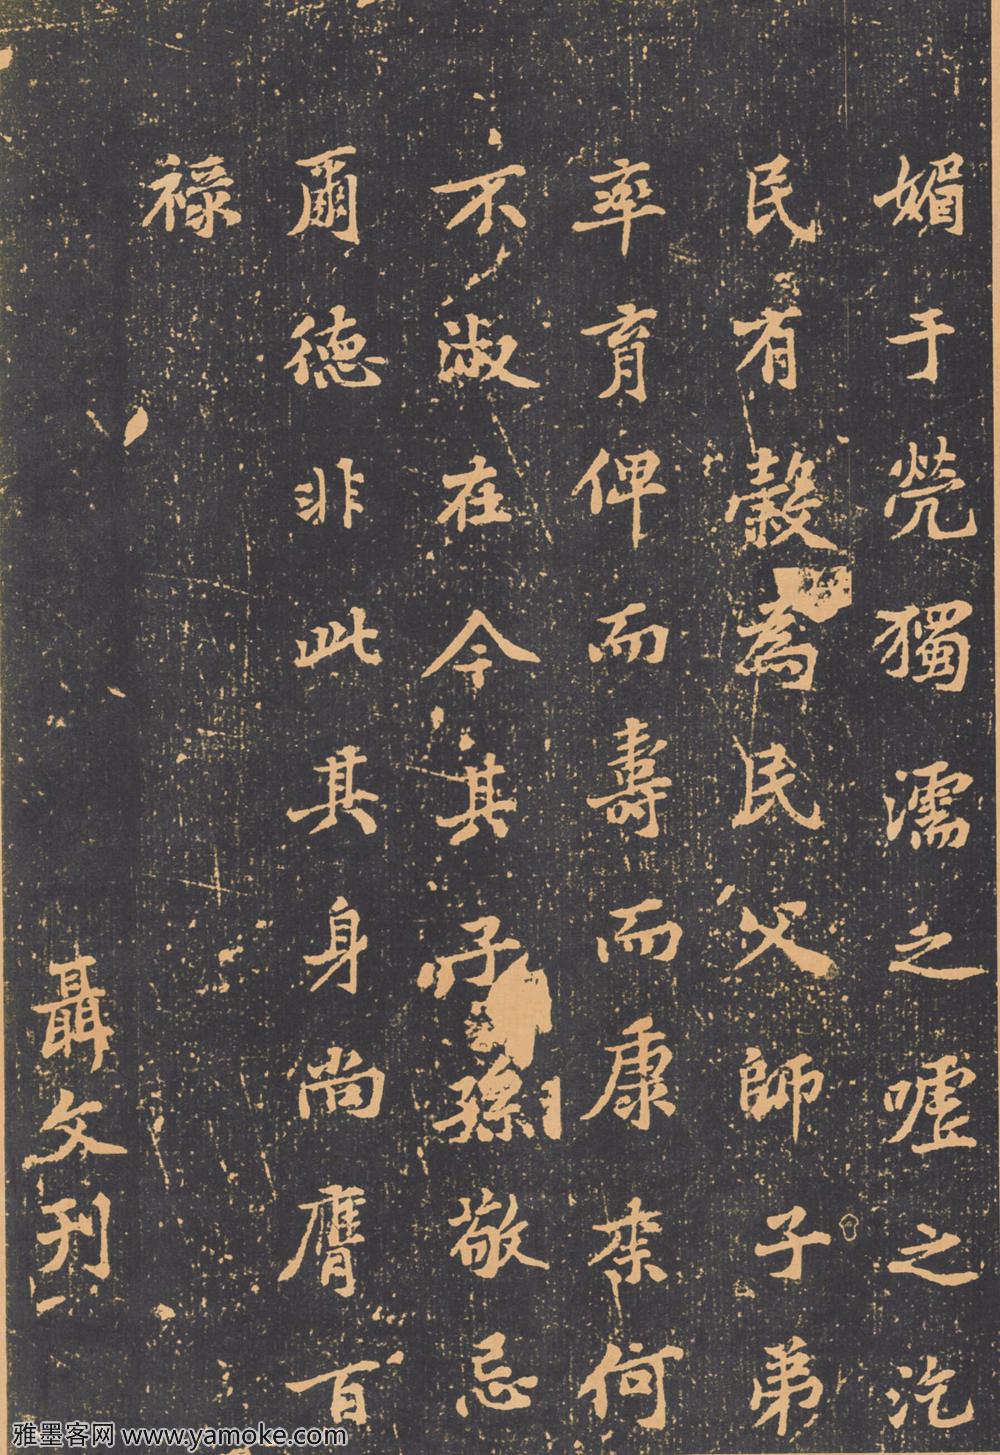 媚于茕獨濡之噓之汔
民有穀為民父師子弟
率育俾而壽而康柰何
不淑在今其子孫敬忌
爾德非此其身尚膺百
祿
聶文刊
雅墨客网 www.yamoke.com